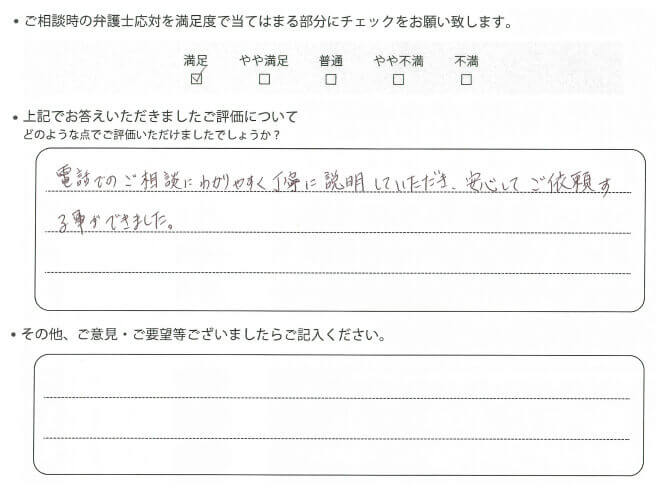 • ご相談時の弁護士応対を満足度で当てはまる部分にチェックをお願い致します。
満足 やや満足 普通 やや不満 不満
☑ ☐ ☐ ☐ ☐
• 上記でお答えいただきましたご評価について
どのような点でご評価いただけましたでしょうか？
電話でのご相談にわかりやすく丁寧に説明していただき、安心してご依頼す
る事ができました。
• その他、ご意見・ご要望等ございましたらご記入ください。